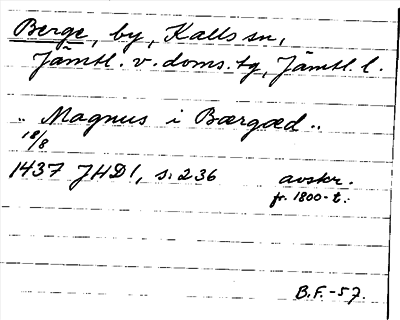 Berge, by, Kalls sn,
Jämtl. v. doms. tg, Jämtl. l.
„ Magnus i Bærgæd „
18/8
1437 JHD1, s. 236 avskr.
fr. 1800-t.
B.F.-57.